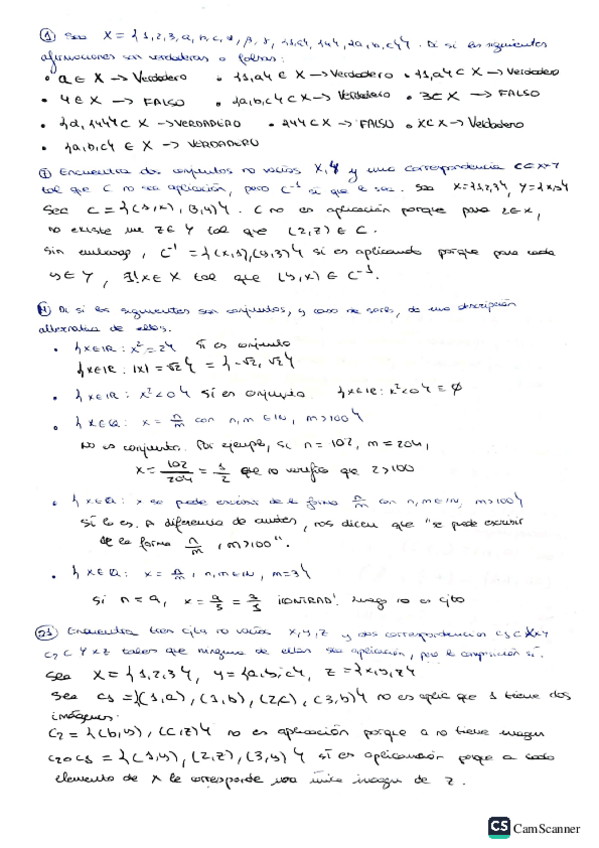 ① Sea X = {1,2,3,a,b,c,α,β,γ, {1,a}, {4}, {a,b,c}}. Di si las siguientes
afirmaciones son verdaderas o falsas:
• a ∈ X → Verdadero • {1,a} ∈ X → Verdadero • {1,a} ⊂ X → Verdadero
• 4 ∈ X → FALSO • {a,b,c} ⊂ X → Verdadero • 3 ⊂ X → FALSO
→ VERDADERO • {4} ⊂ X → FALSO • X ⊂ X → Verdadero
• {a,b,c} ∈ X → VERDADERO
Encuentra dos conjuntos no vacíos X, Y y una correspondencia C ⊂ X×Y
tal que C no sea aplicación, pero C⁻¹ sí que lo sea. Sea X={1,2,3}, Y={x,y}
Sea C = {(1,x), (3,y)}. C no es aplicación porque para 2 ∈ X,
no existe un z ∈ Y tal que (2,z) ∈ C.
Sin embargo, C⁻¹ = {(x,1),(y,3)} sí es aplicación porque para cada
y ∈ Y, ∃! x ∈ X tal que (y,x) ∈ C⁻¹.
Di si los siguientes son conjuntos, y caso de serlo, da una descripción
alternativa de ellos.
• {x∈ℝ : x² = 2} Sí es conjunto
{x∈ℝ : |x| = √2} = {-√2, √2}
• {x∈ℝ : x² < 0} Sí es conjunto {x∈ℝ : x² < 0} = ∅
• {x∈ℚ : x = n/m con n,m ∈ ℕ, m>100}
No es conjunto. Por ejemplo, si n = 102, m = 204,
x = 102/204 = 1/2 que no verifica que 2>100
• {x∈ℚ : x se puede escribir de la forma n/m con n,m∈ℕ, m>100}
Sí lo es. A diferencia de antes, nos dicen que "se puede escribir
de la forma n/m, m>100".
• {x∈ℚ : x = n/m, n,m∈ℕ, m=3}
Si n = 9, x = 9/3 = 3/1 ¡CONTRAD! luego no es cjto
Encuentra tres cjtos no vacíos X,Y,Z y dos correspondencias C₁⊂X×Y
C₂⊂Y×Z tales que ninguna de ellas sea aplicación, pero la composición sí.
Sea X = {1,2,3}, Y = {a,b,c}, Z = {x,y,z}
Sea C₁ = {(1,a), (1,b), (2,c), (3,b)} no es aplic que 1 tiene dos
imágenes.
C₂ = {(b,y), (c,z)} no es aplicación porque a no tiene imagen
C₂∘C₁ = {(1,y), (2,z), (3,y)} sí es aplicación porque a cada
elemento de X le corresponde una única imagen de Z.
CS CamScanner